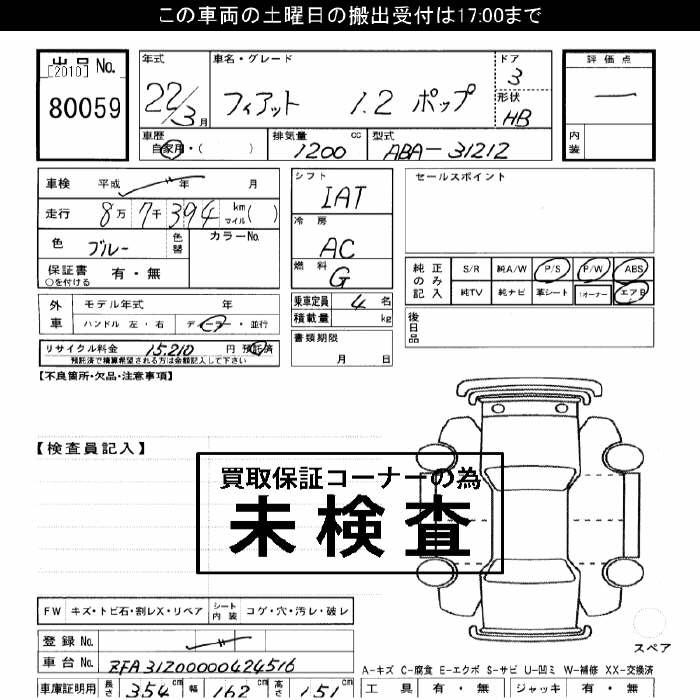 この車両の土曜日の搬出受付は17:00まで
出品 No.
[2010]
80059
年式
22/3月
車名・グレード
フィアット 1.2 ポップ
ドア
3
形状
HB
評価点
一
内装
車歴
自家用・( )
排気量 cc
1200
型式
ABA-31212
車検 平成 〃 年 月
走行 8万 7千 394 km マイル( )
色 ブルー
色替
カラーNo.
保証書 有・無
○を付ける
シフト
IAT
冷房
AC
燃料
G
乗車定員 4 名
積載量 kg
書類期限
月 日
セールスポイント
純正のみ記入
S/R 純A/W P/S P/W ABS
純TV 純ナビ 革シート 1オーナー エアB
後日品
外車
モデル年式 年
ハンドル 左・右 ディーラー・並行
リサイクル料金 15,210 円 預託済
預託済で積算希望される方は金額記入して下さい
【不良箇所・欠品・注意事項】
【検査員記入】
買取保証コーナーの為
未検査
FW キズ・トビ石・割レX・リペア シート内装 コゲ・穴・汚レ・破レ
登録 No. 〃
車台 No. ZFA31200000424516
車庫証明用 長さ 354 cm 幅 162 cm 高さ 151 cm
スペア
A-キズ C-腐食 E-エクボ S-サビ U-凹ミ W-補修 XX-交換済
工具 有・無 ジャッキ 有・無